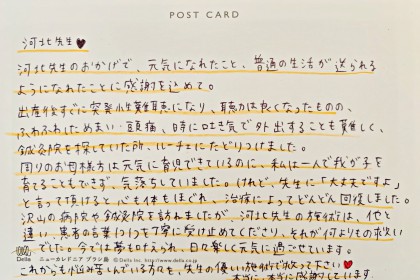 POST CARD
河北先生♥
河北先生のおかげで、元気になれたこと、普通の生活が送られる
ようになれたことに感謝を込めて。
出産後すぐに突発性難聴になり、聴力は良くなったものの、
ふわふわしためまい・頭痛、時に吐き気で外出することも難しく、
鍼灸院を探していた所、ルーチェにたどりつけました。
周りのお母様方は元気に育児できているのに、私は一人で我が子を
育てることもできず、気落ちしていました。けれど、先生に「大丈夫ですよ」
と言って頂けると心も体もほぐれ、治療によってどんどん回復しました。
沢山の病院や鍼灸院を訪れましたが、河北先生の施術は、他と
違い、患者の言葉1つ1つを丁寧に受け止てくださり、それが何よりもの救い
でした。今では夢も叶えられ、日々楽しく元気に過ごせています。
これからも悩み苦しんでいる方々を、先生の優しい施術で救って下さい♥
Della ニューカレドニア ブラシ島
© Della Inc.